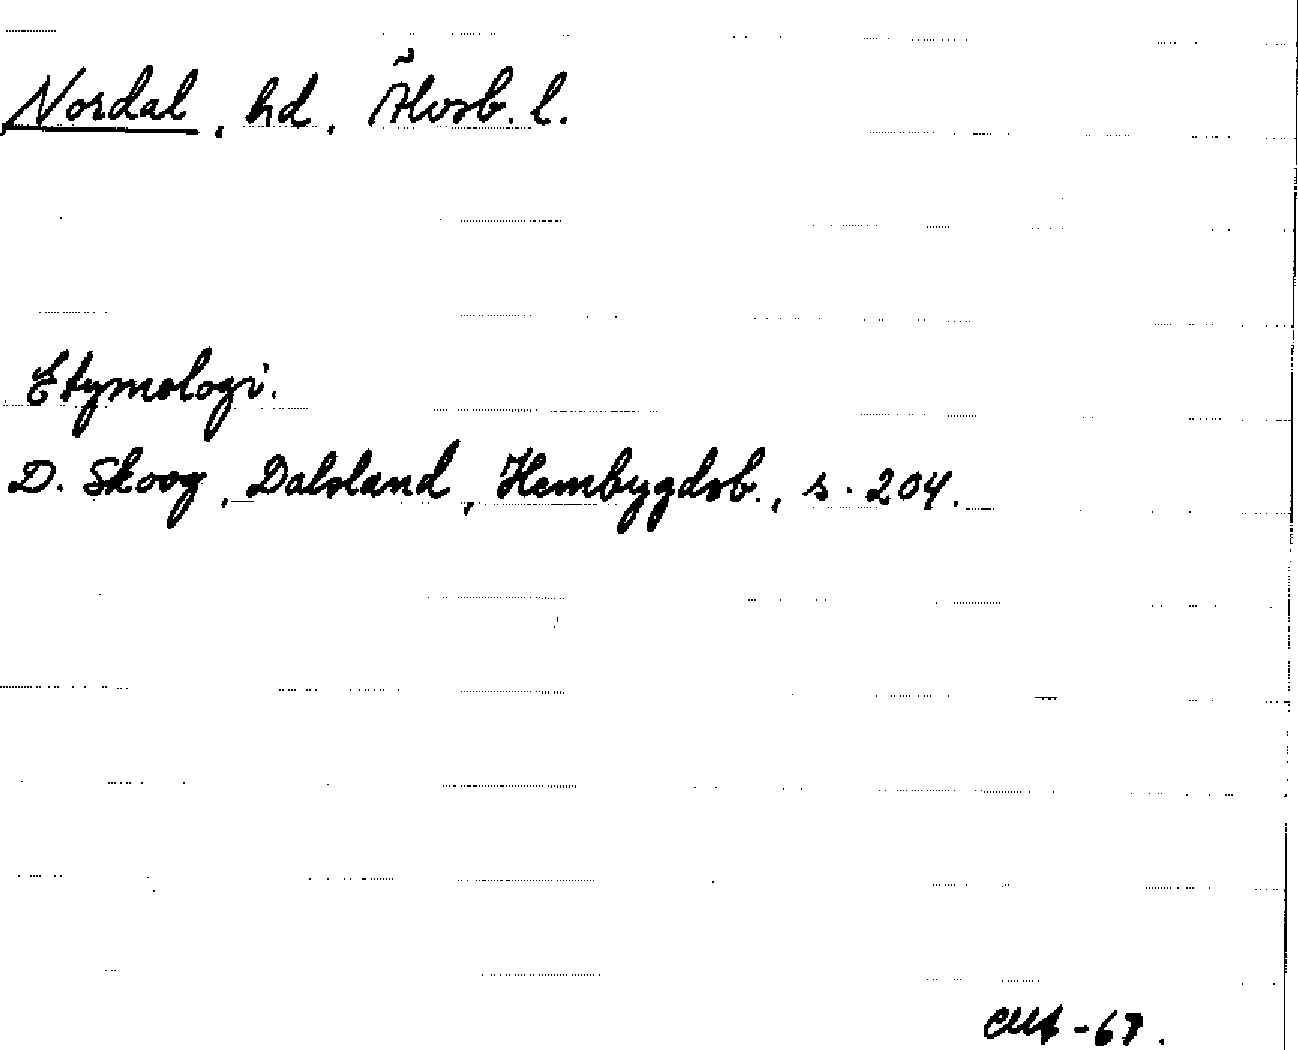 Nordal, hd, Älvsb. l.
Etymologi.
D. Skoog, Dalsland, Hembygdsb., s. 204.
-67.